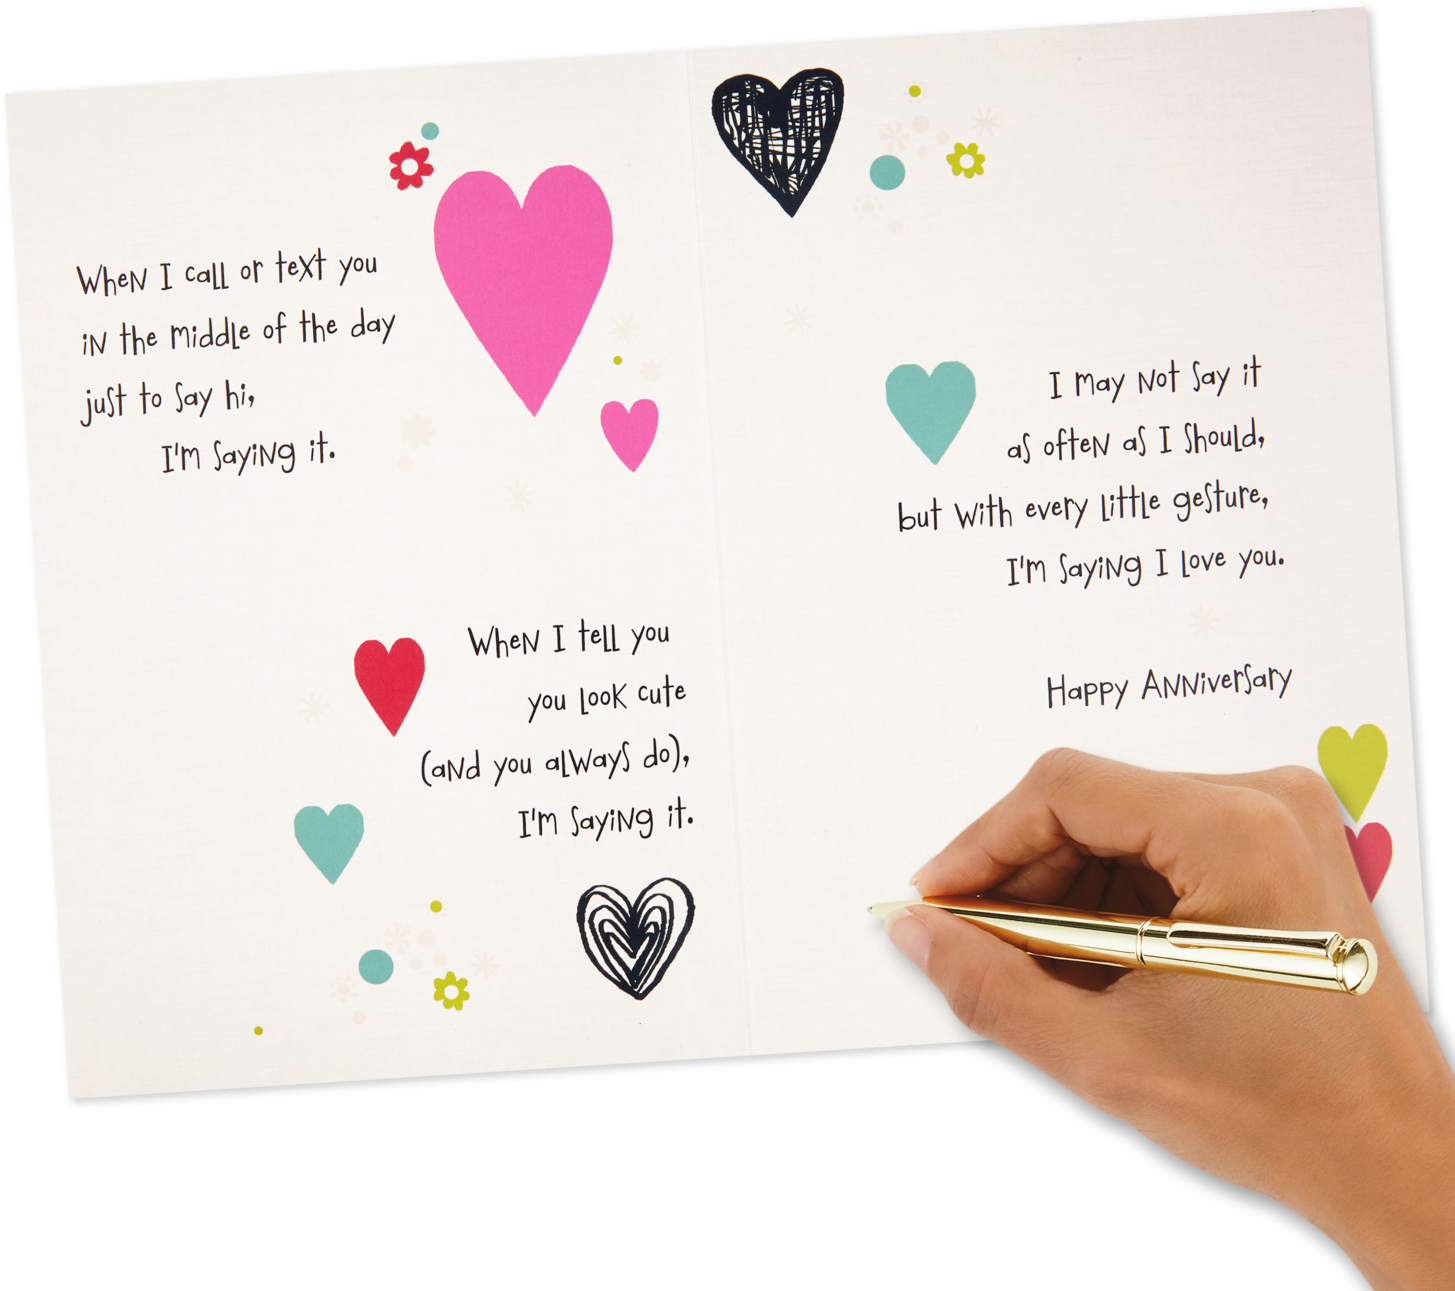 When I call or text you
in the middle of the day
just to say hi,
I'm saying it.
When I tell you
you look cute
(and you always do),
I'm saying it.
I may not say it
as often as I should,
but with every little gesture,
I'm saying I love you.
Happy Anniversary